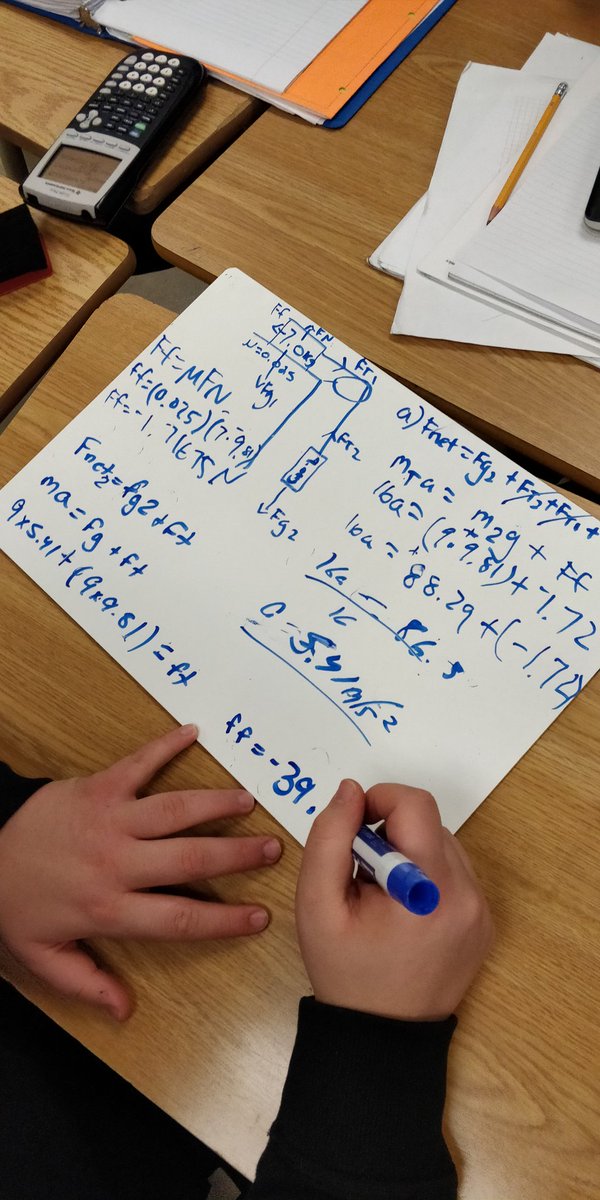 Ff
FN
47.0kg
μ=0.025
FT1
Fg1
FT2
Fg2
Ff=μFN
Ff=(0.025)(7·-9.81)
Ff=-1.71675N
Fnet2=fg2+Ft
ma=fg+ft
9x5.41+(9x9.81)=ft
a) Fnet=Fg2+FT2+FT1+
mTa= m2g + Ff
16a= (9·9.81)+-1.72
16a= 88.29+(-1.72)
16a = 86.5
16
a=5.41m/s2
ff=-39.